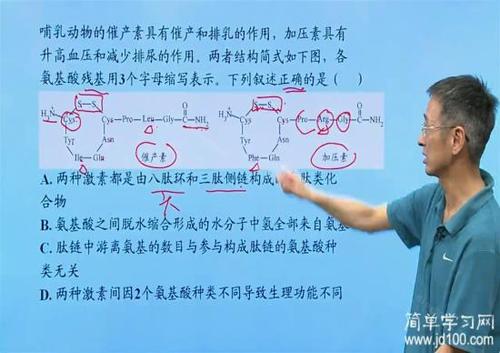 哺乳动物的催产素具有催产和排乳的作用，加压素具有
升高血压和减少排尿的作用。两者结构简式如下图，各
氨基酸残基用3个字母缩写表示。下列叙述正确的是（ ）
S—S
H₃N
Cys
Cys—Pro—Leu—Gly—C—NH₂
O
Tyr
Asn
Ile—Gln
催产素
S—S
H₃N
Cys—Pro—Arg—Gly—C—NH₂
O
Tyr
Asn
Phe—Gln
加压素
A. 两种激素都是由八肽环和三肽侧链构成的肽类化
合物
环
B. 氨基酸之间脱水缩合形成的水分子中氢全部来自氨基
C. 肽链中游离氨基的数目与参与构成肽链的氨基酸种
类无关
D. 两种激素间因2个氨基酸种类不同导致生理功能不同
简单学习网
www.jd100.com